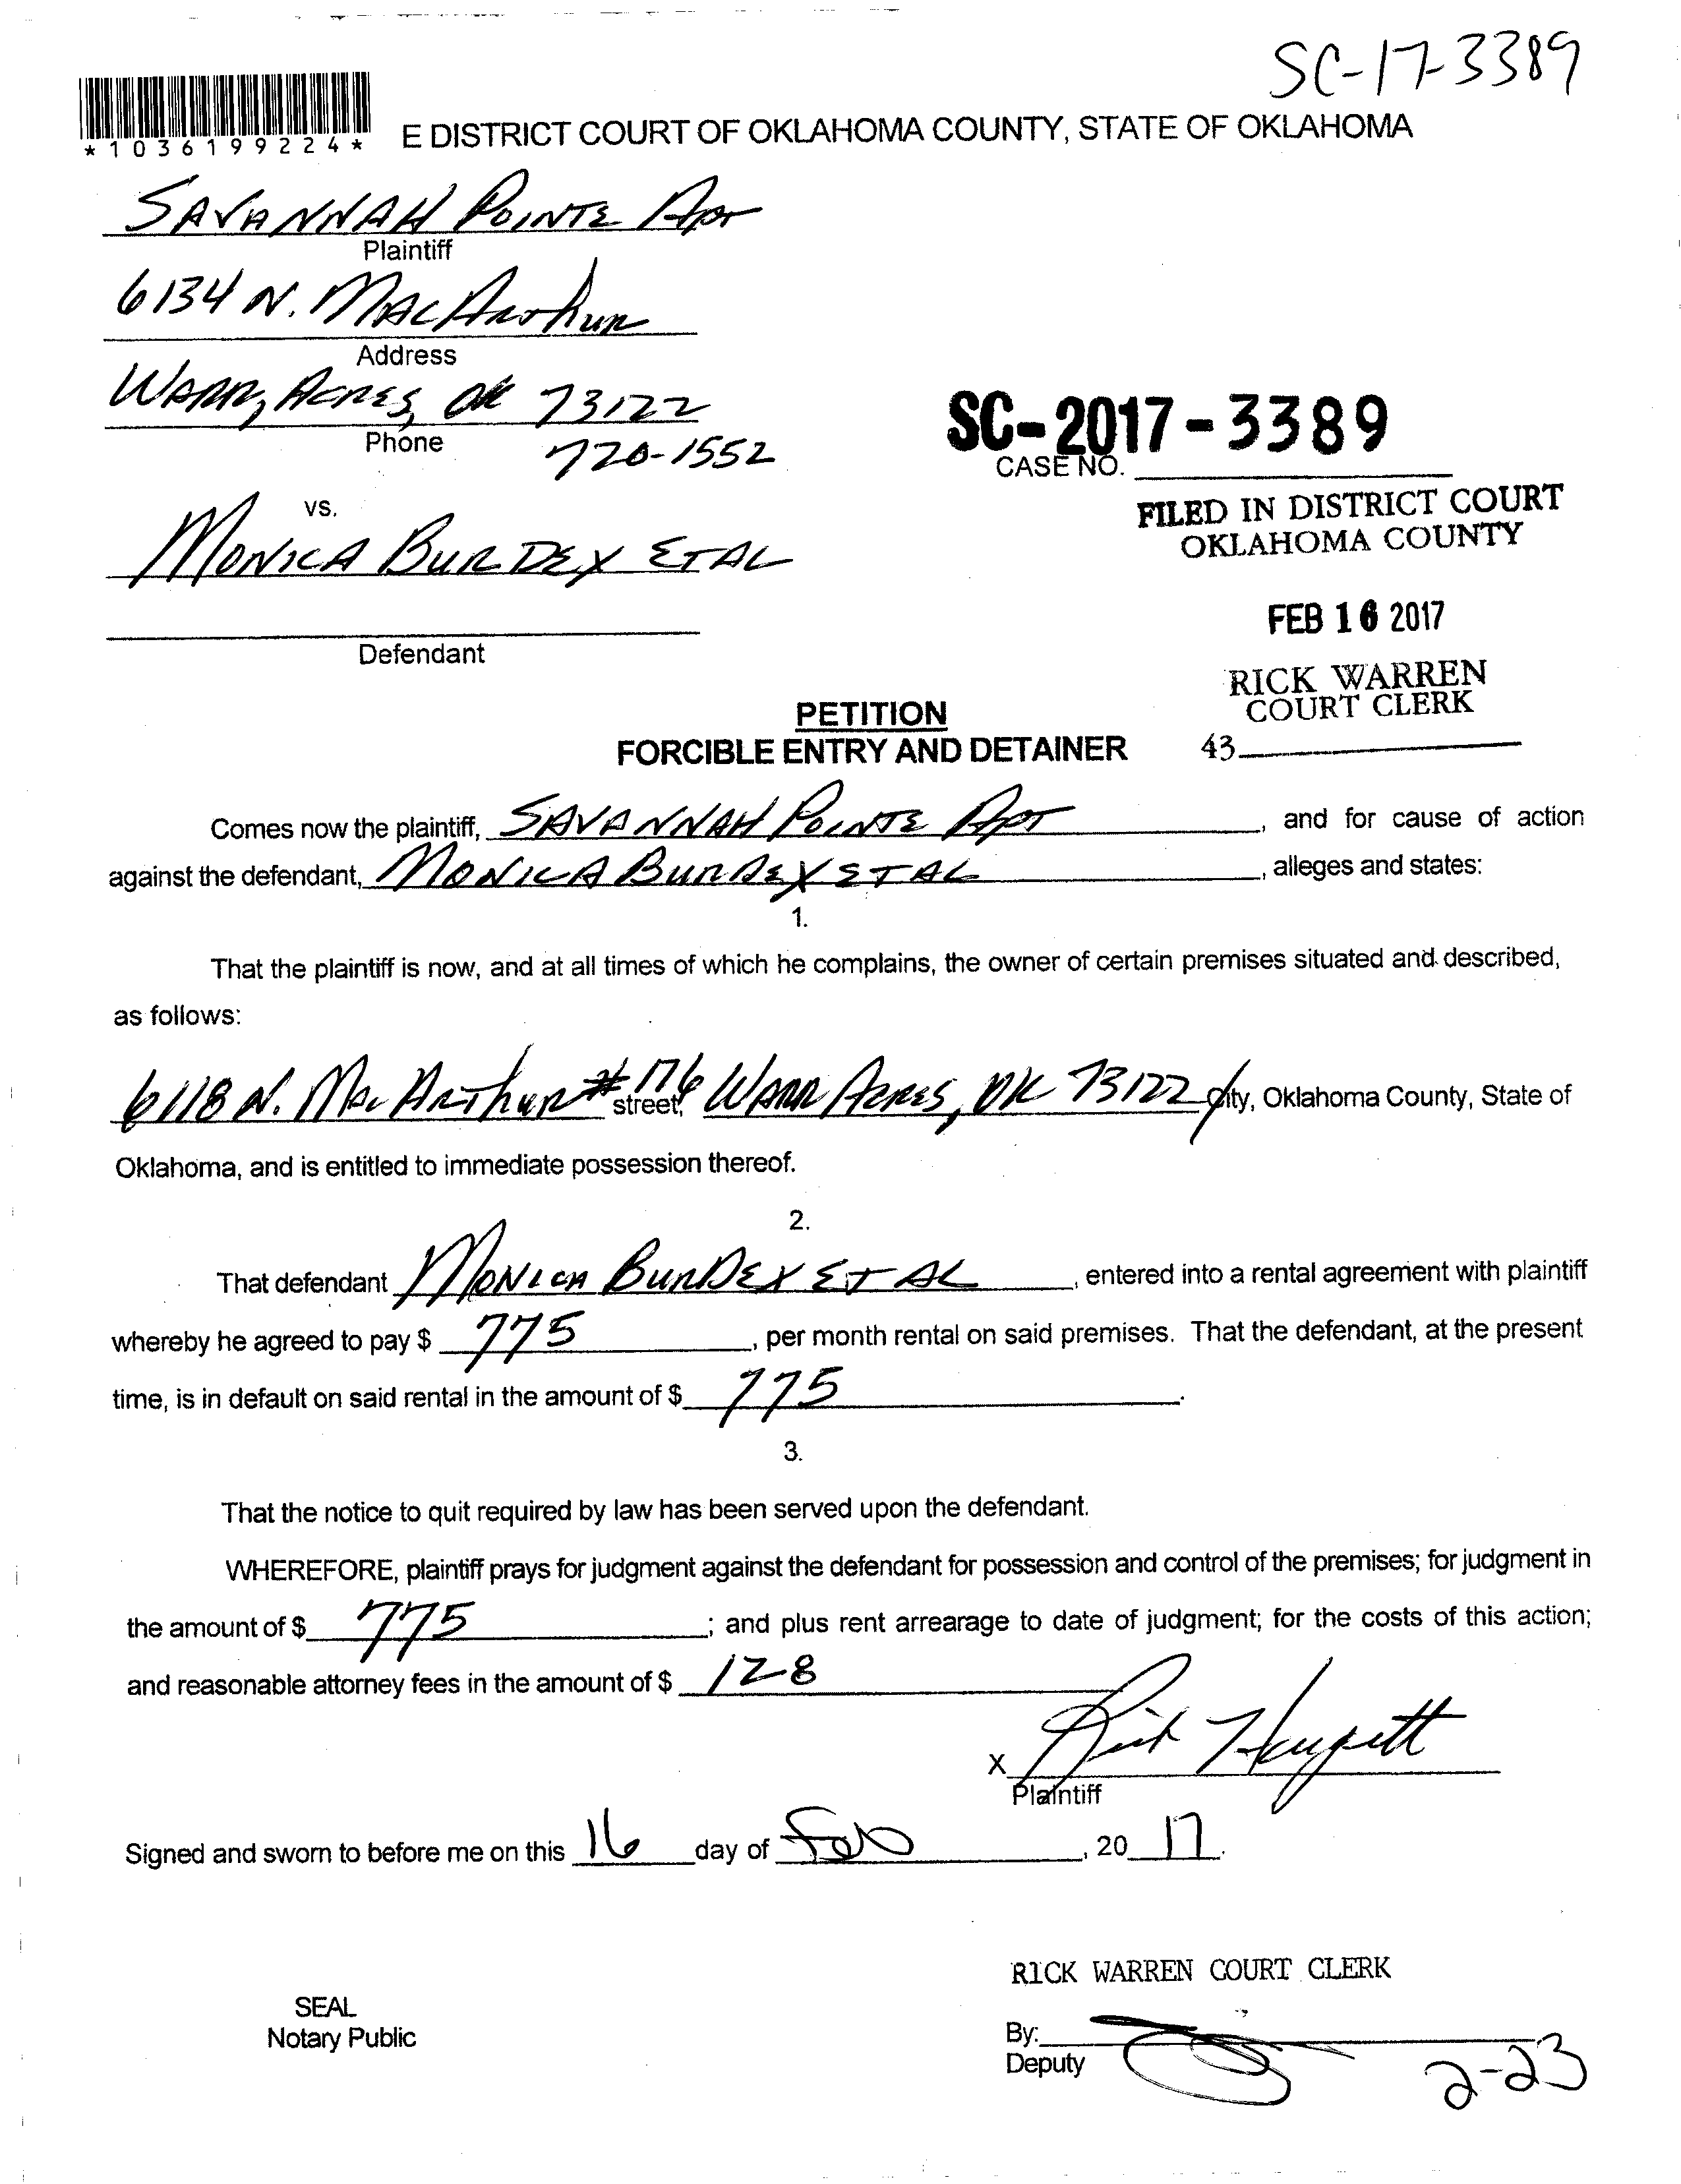 SC-17-3389
*1036199224*
E DISTRICT COURT OF OKLAHOMA COUNTY, STATE OF OKLAHOMA
SAVANNAH POINTE APT
Plaintiff
6134 N. MACARTHUR
Address
WARR, ACRES, OK 73122
Phone
720-1552
SC-2017-3389
CASE NO.
vs.
MONICA BURDEX ETAL
FILED IN DISTRICT COURT
OKLAHOMA COUNTY
FEB 16 2017
Defendant
RICK WARREN
COURT CLERK
43
PETITION
FORCIBLE ENTRY AND DETAINER
Comes now the plaintiff, SAVANNAH POINTE APT, and for cause of action
against the defendant, MONICA BURDEX ETAL, alleges and states:
1.
That the plaintiff is now, and at all times of which he complains, the owner of certain premises situated and described,
as follows:
6118 N. MACARTHUR #176 street, WARR ACRES, OK 73122 City, Oklahoma County, State of
Oklahoma, and is entitled to immediate possession thereof.
2.
That defendant MONICA BURDEX ET AL, entered into a rental agreement with plaintiff
whereby he agreed to pay $ 775, per month rental on said premises. That the defendant, at the present
time, is in default on said rental in the amount of $ 775.
3.
That the notice to quit required by law has been served upon the defendant.
WHEREFORE, plaintiff prays for judgment against the defendant for possession and control of the premises; for judgment in
the amount of $ 775; and plus rent arrearage to date of judgment; for the costs of this action;
and reasonable attorney fees in the amount of $ 128
X
Plaintiff
Signed and sworn to before me on this 16 day of Feb, 20 17.
RICK WARREN COURT CLERK
SEAL
Notary Public
By:
Deputy
2-23